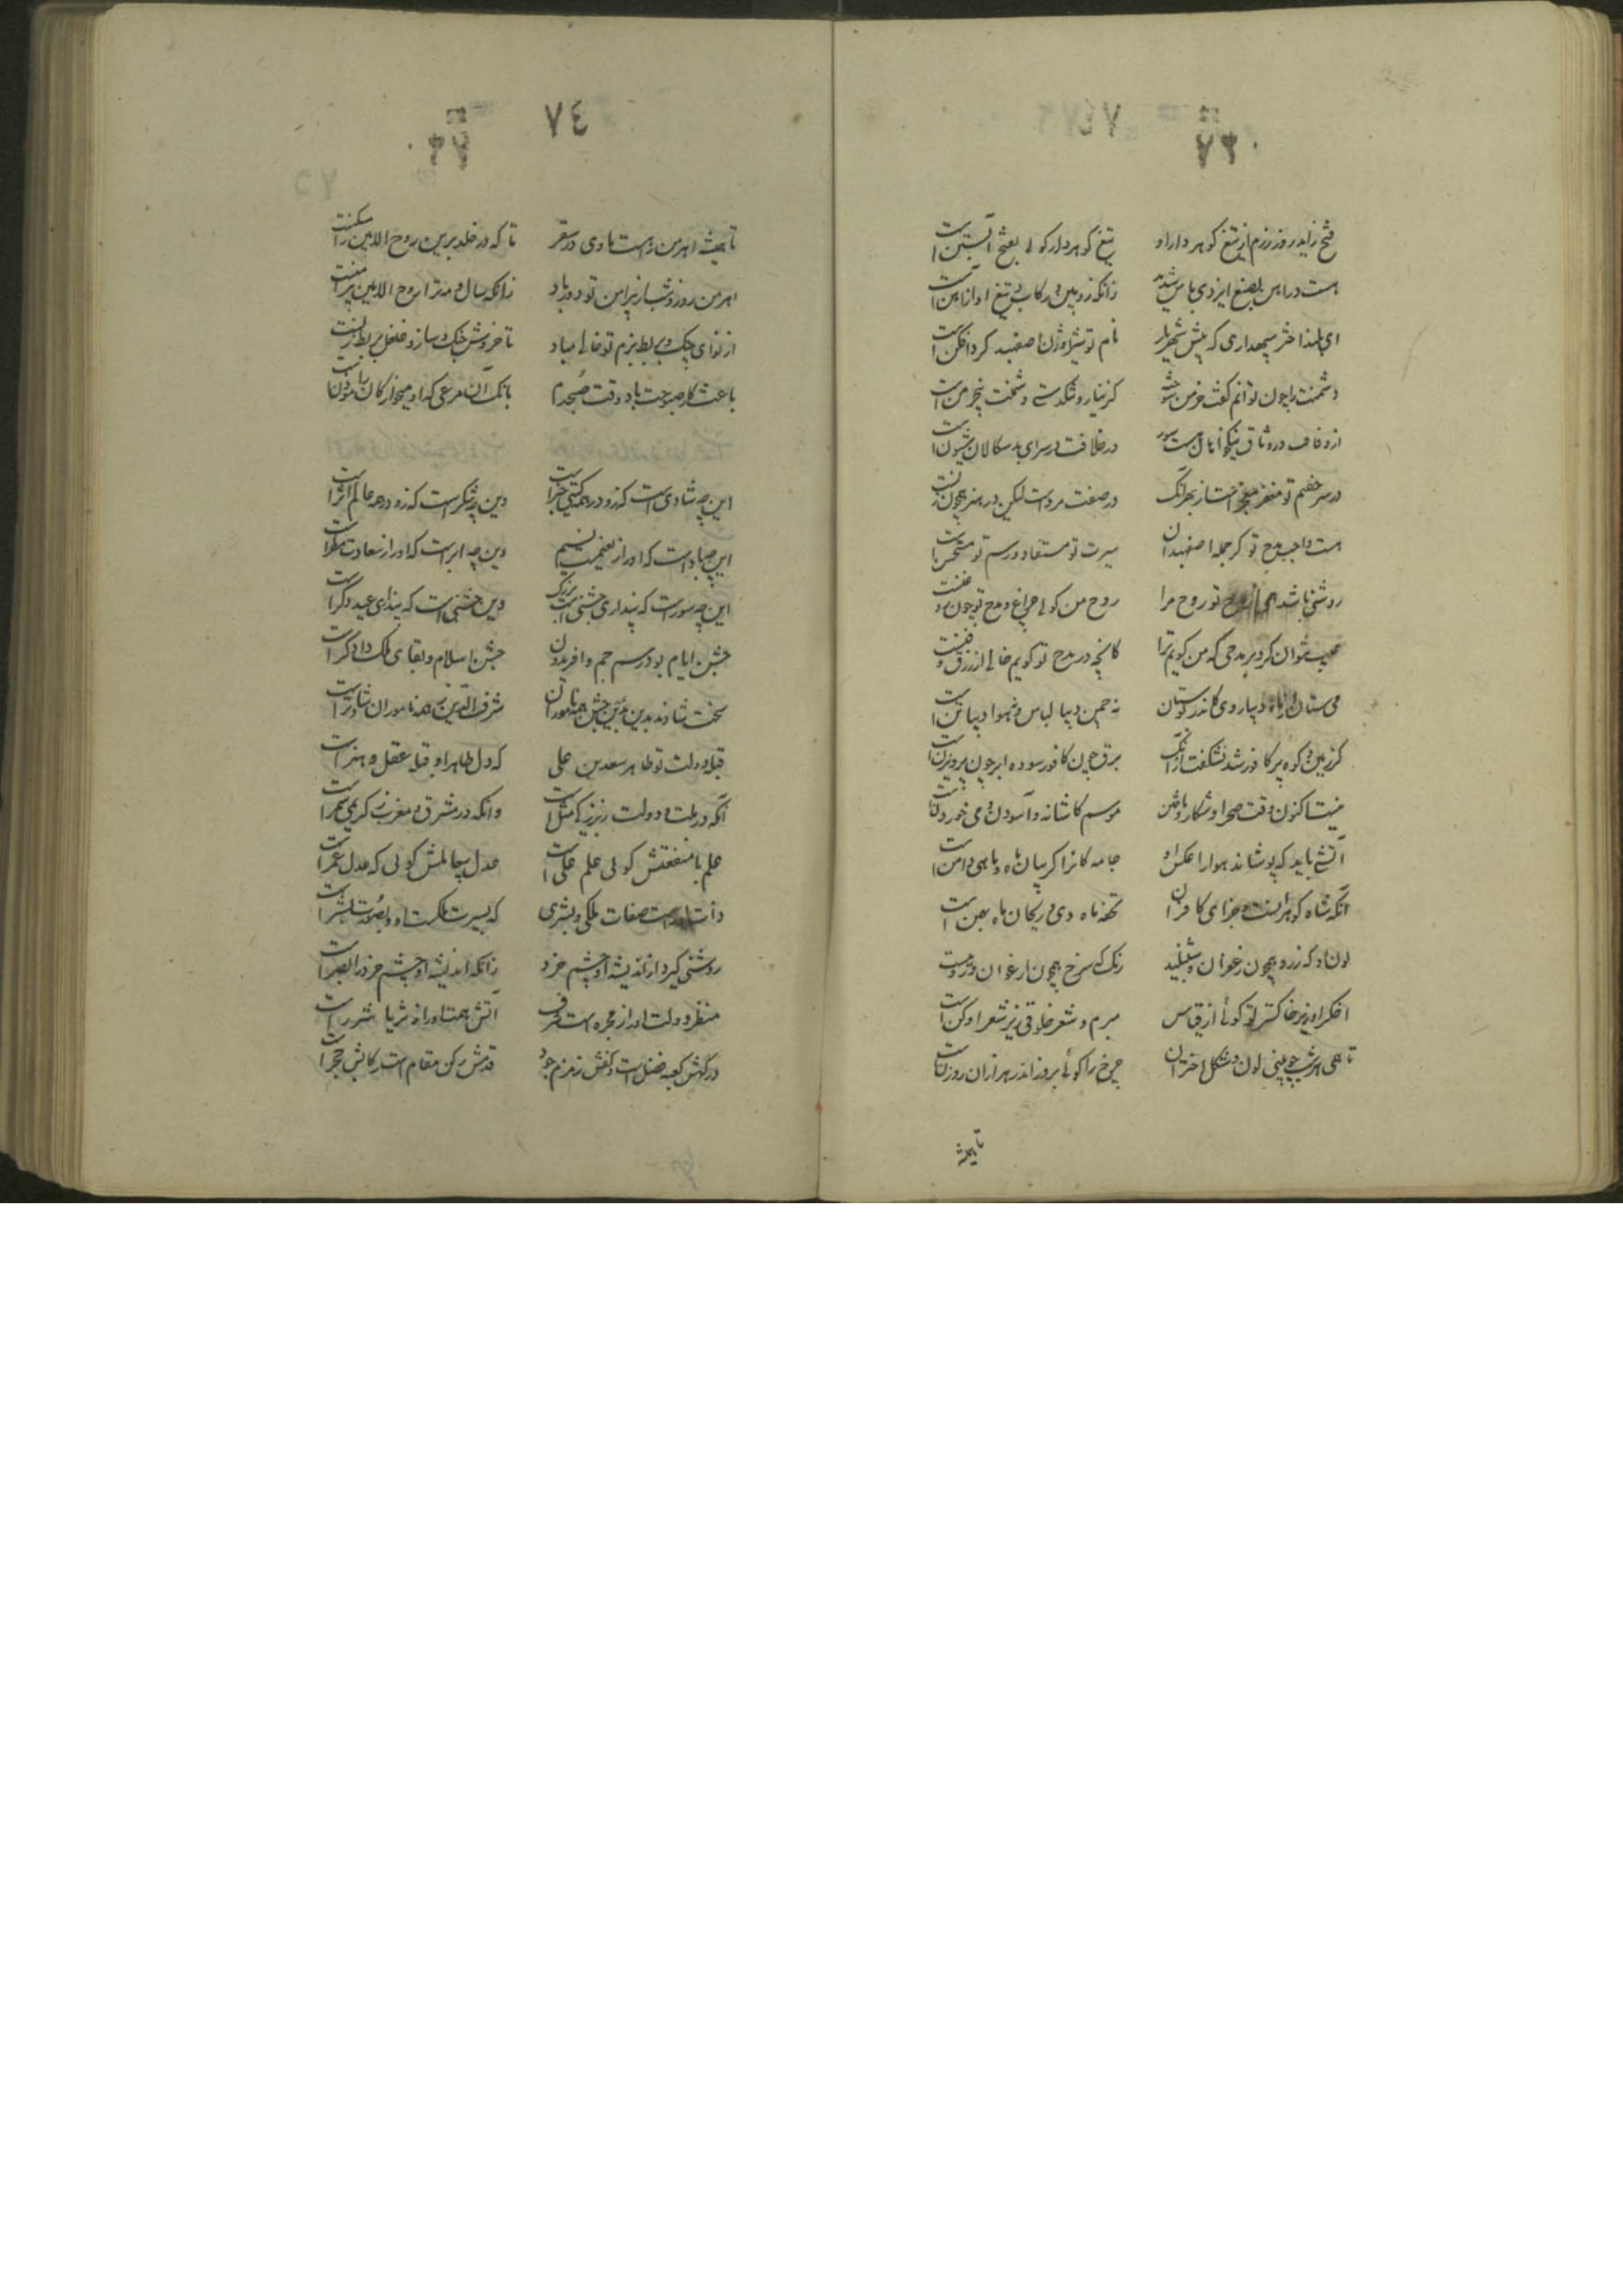 ٧٣٠
فتح زاید روز رزم از تیغ گوهر دار او تیغ گوهر دار گویی بفتح آبستن است
هست در امن بصنع ایزدی باس شدید زانکه زوبین و رکاب و تیغ او از آهن است
ای بلند اختر سپهداری که پیش شهریار نام تو شیر اوژن اصفهبد گرد افکن است
دشمنت را چون توانم گفت خرمن سوخته کز نیاز و تنگدستی دشمنت بی خرمن است
از وفاقت در وثاق نیکخواهان هست سور در خلافت در سرای بدسگالان شیون است
در سر خصم تو مغفر معجر است از بهر آنک در صفت مرد است لیکن در هنر همچون زنست
هست واجب مدح تو کز جمله اصفهبدان سیرت تو مستفاد و رسم تو مستحسن است
روشنی باشد همی از مدح تو روح مرا روح من گویی چراغ و مدح تو چون روغنست
عیب نتوان کرد بر مدحی که من گویم ترا کانچه در مدح تو گویم خالی از زرق و فنست
می ستان از دیبا روی کاندر بوستان نه چمن دیبا لباس و نه هوا دیبا تن است
گر زمین و کوه پر کافور شد نشگفت از آنک برق چون کافور سوده ابر چون پرویزن است
نیست اکنون وقت صحرا و شکار و تاختن موسم کاشانه و آسودن و می خوردن است
آتشی باید که پوشاند هوا را عکس او جامه کانرا گریبان ماه و ماهی دامن است
آنکه شاه گوهرانست و جزای کافران تحفه ماه دی و ریحان ماه بهمن است
لون او گه زرد همچون زعفران و شنبلید رنگ گه سرخ همچون ارغوان و روینست
اخگر او زیر خاکستر تو گوئی از قیاس مبرم و شعر خلوقی زیر شعر ادکن است
تا همی هر شب چو بینی لون و شکل اختران چرخ را گوئی بروز اندر هزاران روزنست
تا همیشه
٧٤
تا همیشه اهرمن را هست ماوی در سقر تا که در خلد برین روح الامین را مسکنست
اهرمن روز و شب از پیرامن تو دور باد زانکه سال و مه ترا روح الامین پیرامنست
از نوای چنگ و بربط بزم تو خالی مباد تا خروش چنگ و ساز و غلغل بربط زنست
باعث کار صبوحت باد وقت صبحدم بانگ آن مرغی که او میخوارگان را مؤذن است
این چه شادی است کزو در همه گیتی خبر است وین چه شکر است کزو در همه عالم اثر است
این چه باد است که او را ز نعیمست نسیم وین چه ابر است که او را ز سعادت مطر است
این چه سور است که پنداری جشنی است بزرگ وین چه جشنی است که پنداری عید دگر است
جشن ایام بود رسم جم و افریدون جشن اسلام و بقای ملک دادگر است
سخت شادند بدین جشن همه ناموران شرف الدین ز همه ناموران شادتر است
قبله دولت تو طاهر سعد بن علی که دل طاهر او قبله عقل و هنر است
آنکه در ملت و دولت ز بزرگی مثل است وانکه در مشرق و مغرب ز کریمی سمر است
علم با منفعتش گویی علم علی است عدل بی حایلش گویی که عدل عمر است
ذات او راست صفات ملکی و بشری که بسیرت ملکست او و بصورت بشر است
روشنی گیرد از اندیشه او چشم خرد زانکه اندیشه او چشم خرد را بصر است
منظر دولت او را ز مجره است شرف آتش همت او را ز ثریا شرر است
درگهش کعبه فضل است و کفش زمزم جود قدمش رکن مقام است و رکابش حجر است